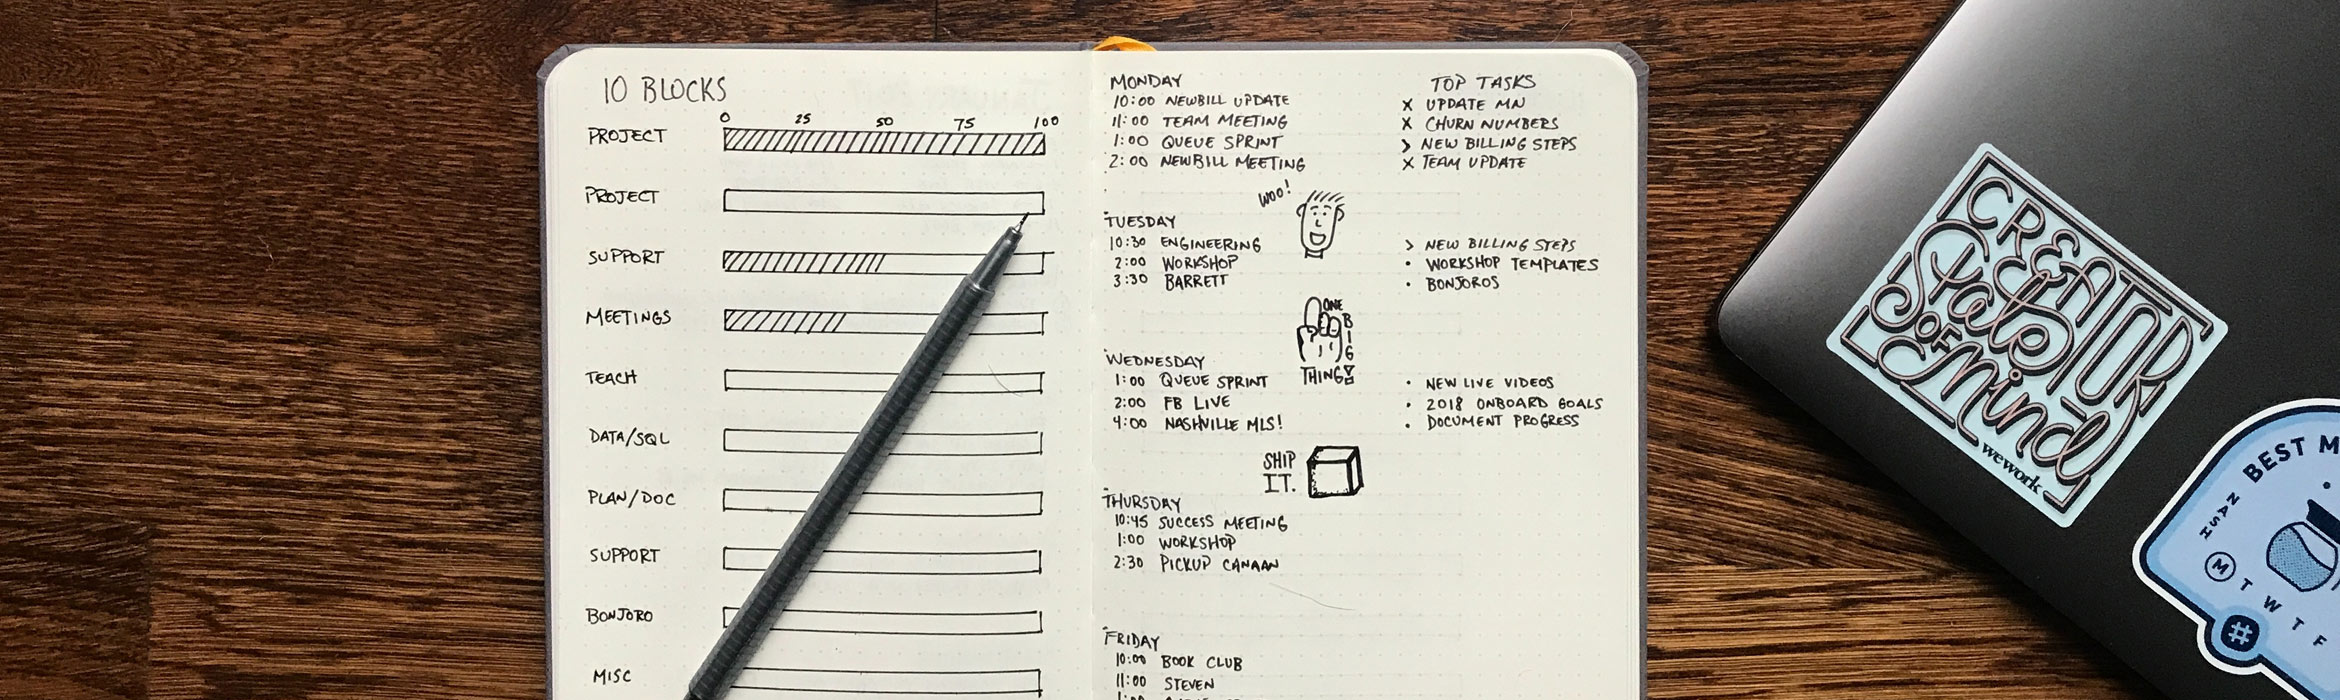 10 BLOCKS
0 25 50 75 100
PROJECT
PROJECT
SUPPORT
MEETINGS
TEACH
DATA/SQL
PLAN/DOC
SUPPORT
BONJORO
MISC
MONDAY
10:00 NEWBILL UPDATE
11:00 TEAM MEETING
1:00 QUEUE SPRINT
2:00 NEWBILL MEETING
TOP TASKS
X UPDATE MN
X CHURN NUMBERS
> NEW BILLING STEPS
X TEAM UPDATE
WOO!
TUESDAY
10:30 ENGINEERING
2:00 WORKSHOP
3:30 BARRETT
> NEW BILLING STEPS
• WORKSHOP TEMPLATES
• BONJOROS
ONE
BIG
THING!
WEDNESDAY
1:00 QUEUE SPRINT
2:00 FB LIVE
4:00 NASHVILLE MLS!
• NEW LIVE VIDEOS
• 2018 ONBOARD GOALS
• DOCUMENT PROGRESS
SHIP
IT.
THURSDAY
10:45 SUCCESS MEETING
1:00 WORKSHOP
2:30 PICKUP CANAAN
FRIDAY
10:00 BOOK CLUB
11:00 STEVEN
CREATOR
State
OF
Mind
wework
BEST M
NASH
M T W T F
#